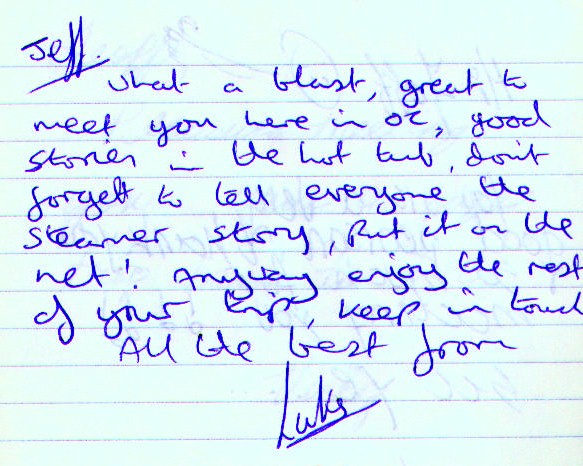 Jeff.
What a blast, great to
meet you here in OZ, good
stories in the hot tub, don't
forgett to tell everyone the
steamer story, Put it on the
net! Anyway enjoy the rest
of your trip, keep in touch
All the best from
Luke